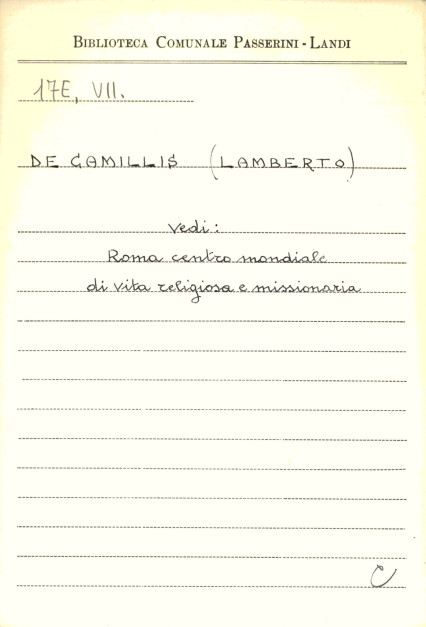 BIBLIOTECA COMUNALE PASSERINI - LANDI
17E, VII.
DE CAMILLIS (LAMBERTO)
Vedi:
Roma centro mondiale
di vita religiosa e missionaria
C